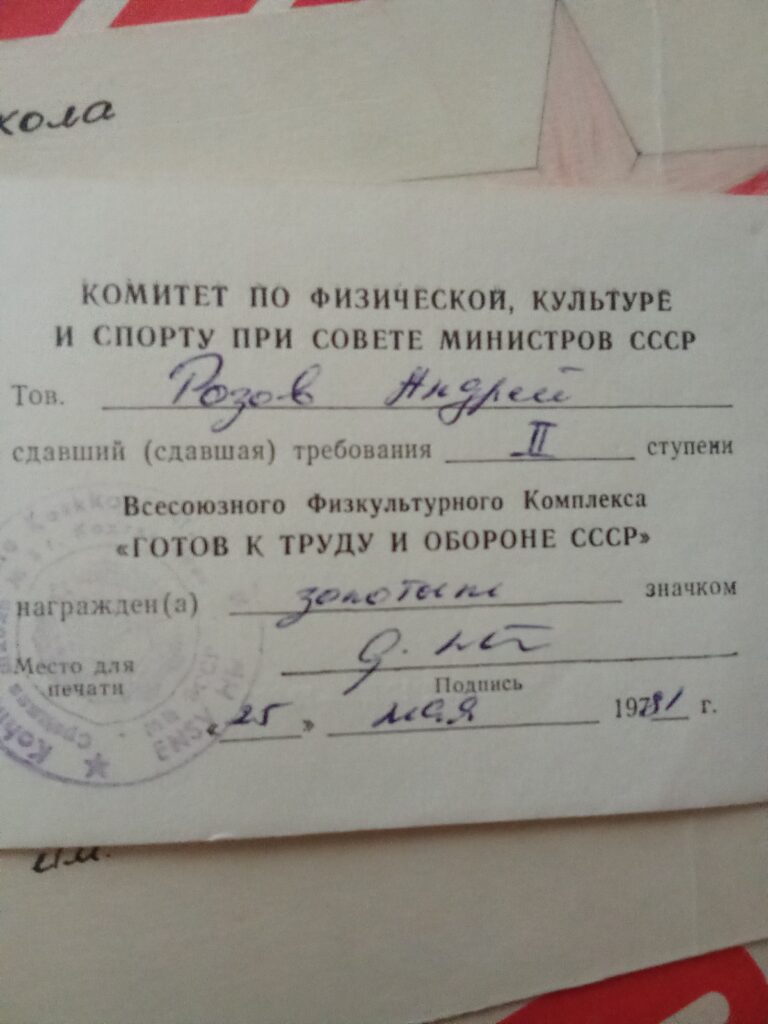 кола
КОМИТЕТ ПО ФИЗИЧЕСКОЙ, КУЛЬТУРЕ
И СПОРТУ ПРИ СОВЕТЕ МИНИСТРОВ СССР
Тов. Розов Андрей
сдавший (сдавшая) требования II ступени
Всесоюзного Физкультурного Комплекса
«ГОТОВ К ТРУДУ И ОБОРОНЕ СССР»
награжден(а) золотым значком
Место для
печати
Подпись
«25» мая 1981 г.
ENSV
им.